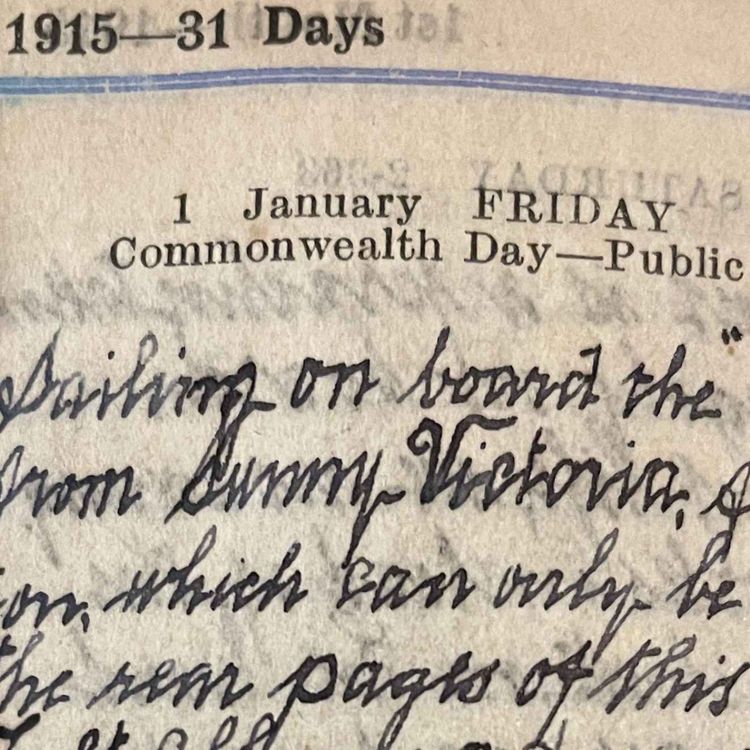 1915—31 Days
1 January FRIDAY
Commonwealth Day—Public
Sailing on board the "
from Sunny Victoria,
on, which can only be
the rear pages of this